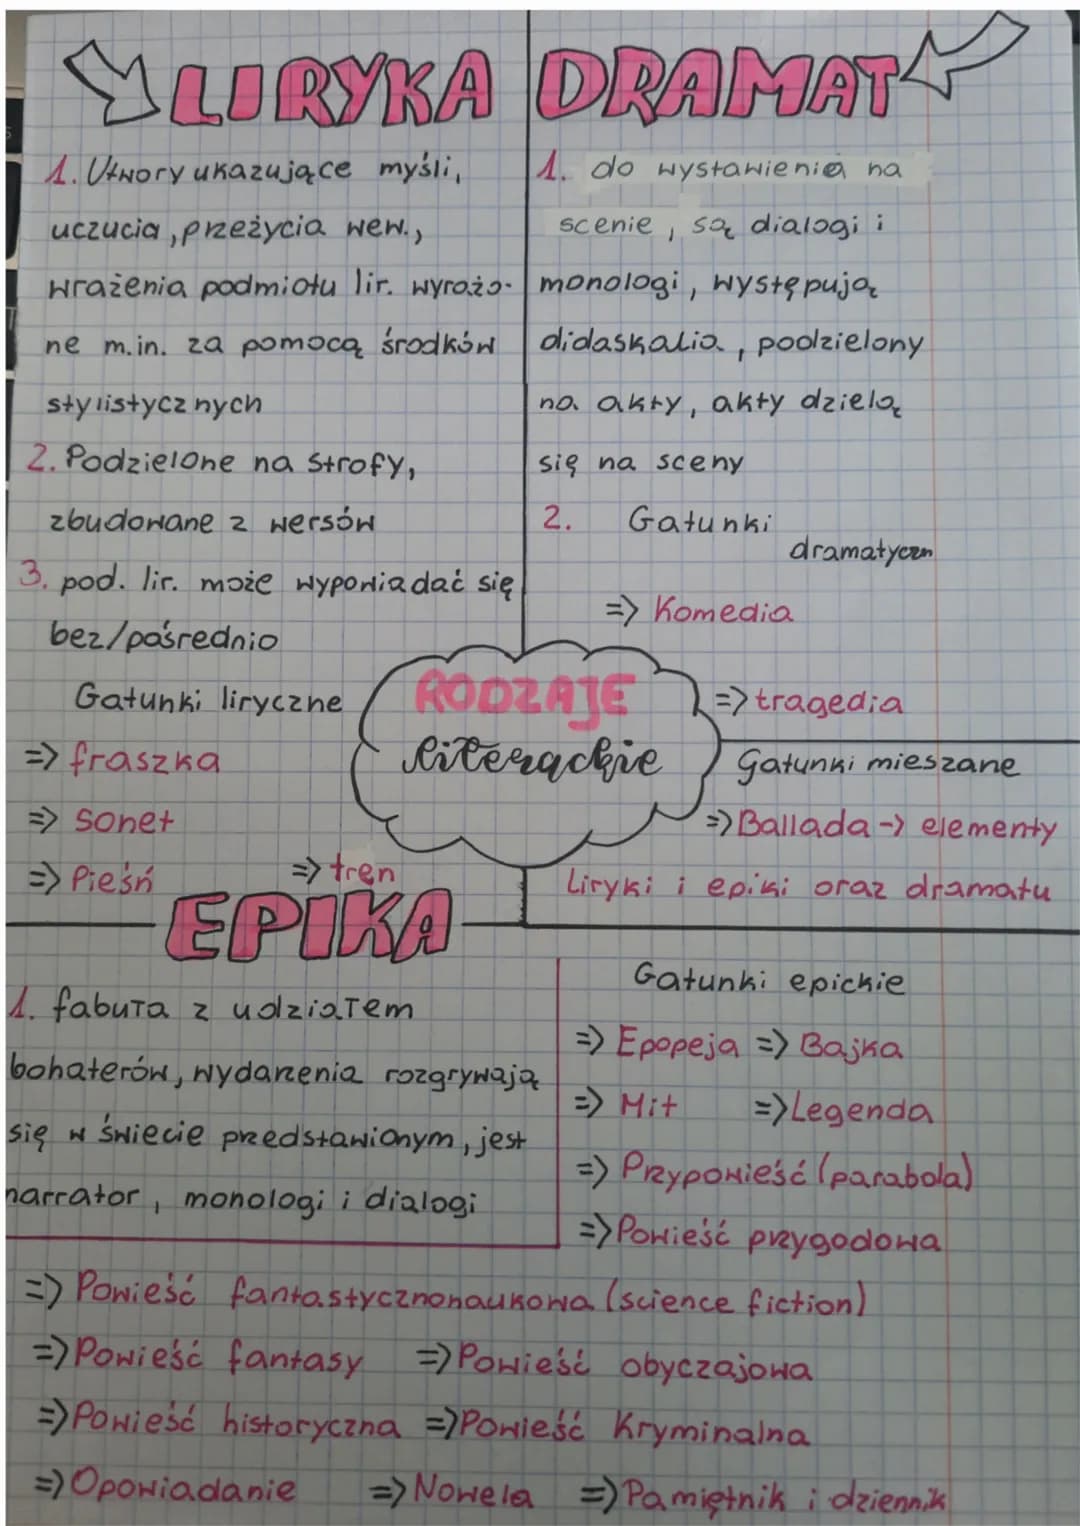 LIRYKA
1. Utwory ukazujące myśli,
uczucia, przeżycia wew.,
wrażenia podmiotu lir. wyrażo-
ne m.in. za pomocą środków
stylistycznych
2. Podzielone na strofy,
zbudowane z wersów
3. pod. lir. może wypowiadać się
bez/pośrednio
Gatunki liryczne
=> fraszka
=> Sonet
=> Pieśń => tren
DRAMAT
1. do wystawienia na
scenie, są dialogi i
monologi, występują
didaskalia, podzielony
na akty, akty dzielą
się na sceny
2. Gatunki
dramatyczn
=> Komedia
=> tragedia
RODZAJE
literackie
Gatunki mieszane
=> Ballada -> elementy
Liryki i epiki oraz dramatu
EPIKA
1. fabuła z udziałem
bohaterów, wydarzenia rozgrywają
się w świecie przedstawionym, jest
narrator, monologi i dialogi
Gatunki epickie
=> Epopeja => Bajka
=> Mit => Legenda
=> Przypowieść (parabola)
=> Powieść przygodowa
=> Powieść fantastycznonaukowa (science fiction)
=> Powieść fantasy => Powieść obyczajowa
=> Powieść historyczna => Powieść Kryminalna
=> Opowiadanie => Nowela => Pamiętnik i dziennik